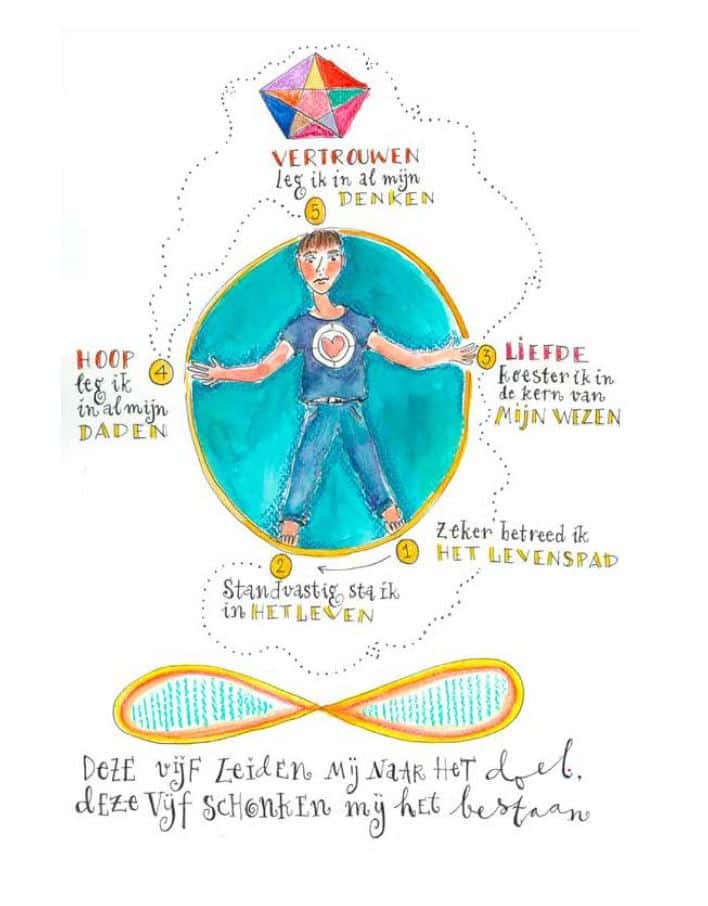 VERTROUWEN
leg ik in al mijn
DENKEN
5
HOOP
leg ik
in al mijn
DADEN
4
3
LIEFDE
koester ik in
de kern van
MIJN WEZEN
Zeker betreed ik
HET LEVENSPAD
1
2
Standvastig sta ik
in HET LEVEN
DEZE vijf LEiDEN Mij NAAR HET doel,
dEZE Vijf SCHONKEN mij hET bestaan